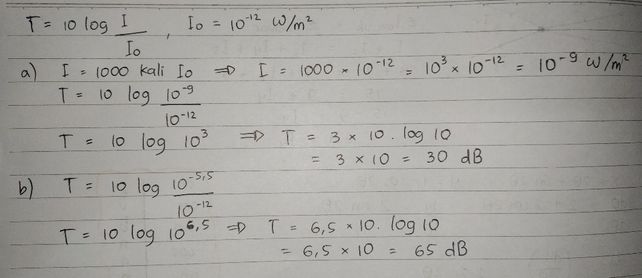 T = 10 log I/I₀ , I₀ = 10⁻¹² W/m²
a) I = 1000 kali I₀ ⇒ I = 1000 × 10⁻¹² = 10³ × 10⁻¹² = 10⁻⁹ W/m²
T = 10 log 10⁻⁹/10⁻¹²
T = 10 log 10³ ⇒ T = 3 × 10 . log 10
= 3 × 10 = 30 dB
b) T = 10 log 10⁻⁵,⁵/10⁻¹²
T = 10 log 10⁶,⁵ ⇒ T = 6,5 × 10. log 10
= 6,5 × 10 = 65 dB